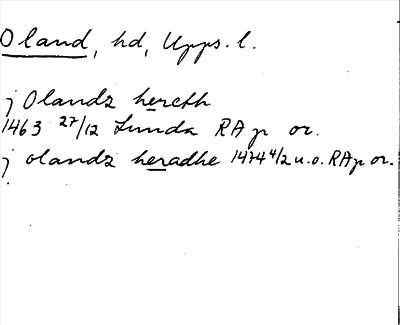 Oland, hd, Upps. l.
j Olandz hereth
1463 27/12 Lunda RAp or.
j olandz heradhe 1474 4/2 u.o. RAp or.